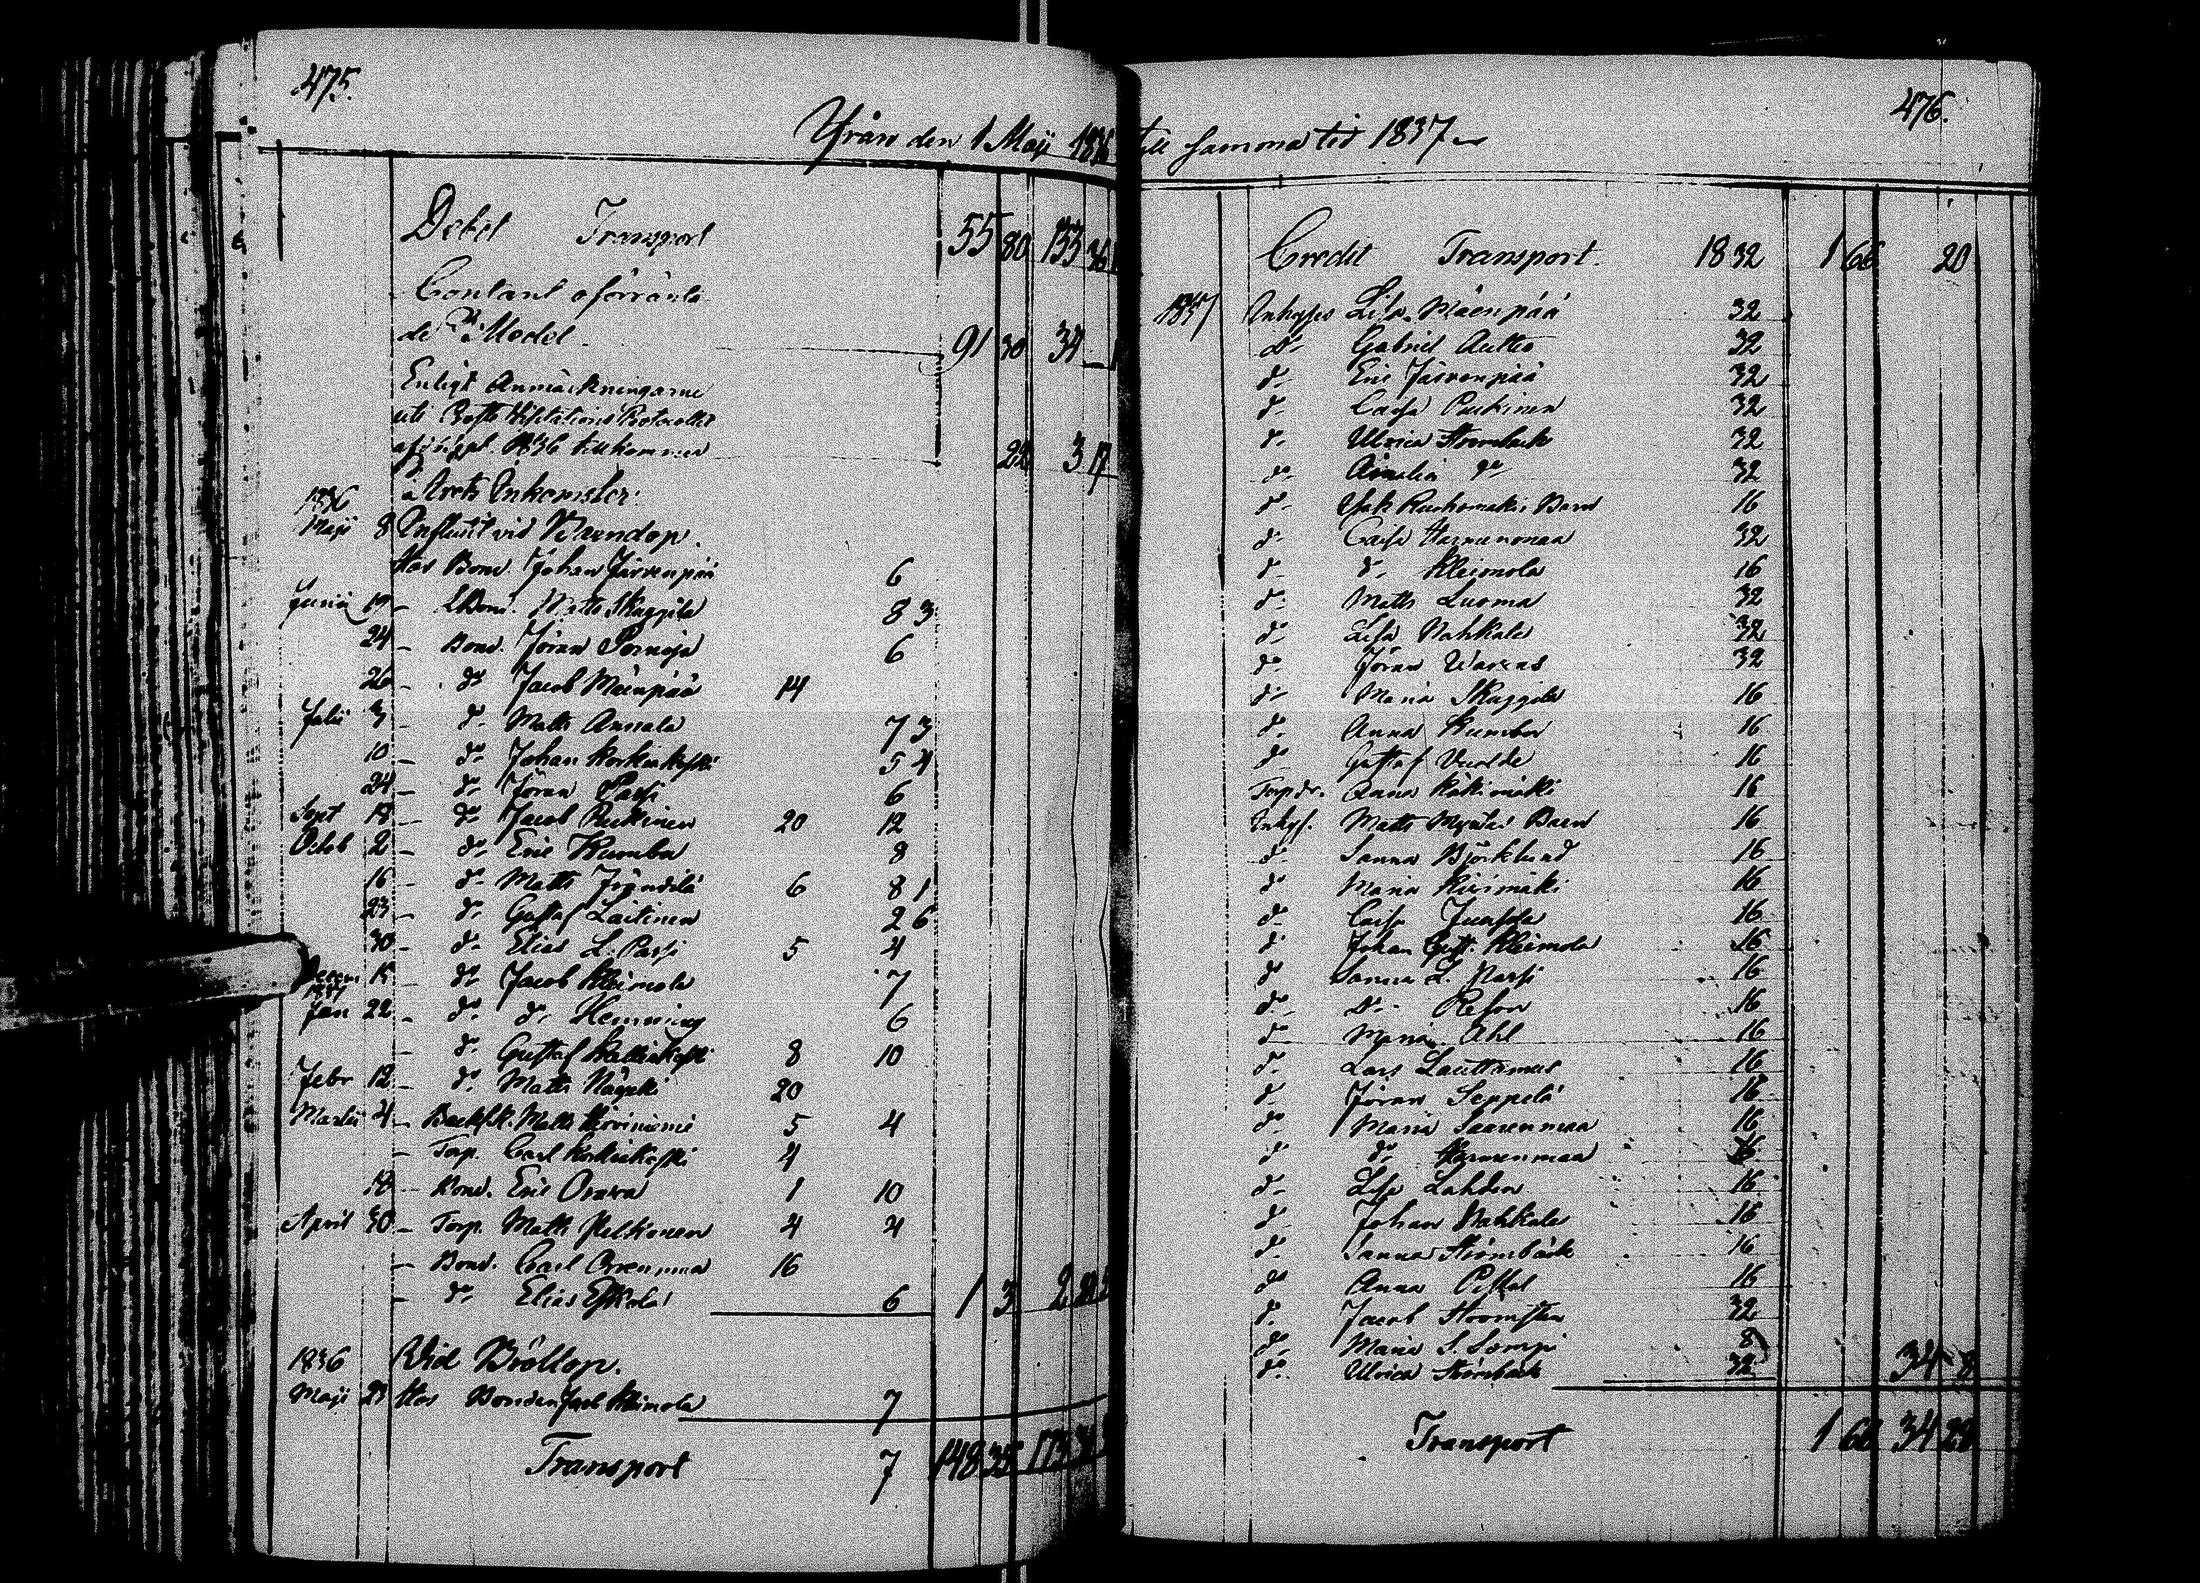 475.
Från den 1 Maji 1836
Debet Transport 55 80 133 36
Contant oförränta
de Medel. 91 30 34 -
Enligt Anmärkningarne
uti Visitations Protocollet
1836 tillkommer 22 3 17
Årets Inkomster:
1836
Maji 8 Influtit vid Barndop.
Hos Bond. Johan Järvenpää 6
Junii 19 - Matts Skaggila 8 3
24 - Bond. Jöran Pernaja 6
26 - do Jacob Mäenpää 14
Julii 3 - do Matts Annala 7 3
10 - do Johan Korkiakoski 5 4
24 - do Jöran Passi 6
Sept 18 - do Jacob Peukinen 20 12
Octob 2 - do Eric Kumba 8
16 - do Matts 6 8 1
23 - do Gustaf Laitinen 2 6
30 - do Elias L. Passi 5 4
Decem 15 do Jacob Kleimola 7
1837
Jan 22 - do do Hemming 6
- do Gustaf 8 10
Febr 12 - do Matts Näypki 20
Martii 4 - Matts 5 4
- Torp. Carl Korkiakoski 4
18 - Bond. Eric Orava 1 10
April 30 - Torp. Matts Pelkonen 4 4
- Bond. Carl Orrenmaa 16
- do Elias Eskola 6 1 3 2
1836 Vid Bröllop.
Maji 23 Hos Bonden Jacob Kleimola 7
Transport 7 148 35 173
476.
till samma tid 1837
Credit Transport. 18 32 1 66 20
1837 Inhyses Lisa Mäenpää 32
do Gabriel Auttio 32
do Eric Järvenpää 32
do Caisa Peukinen 32
do Ulrica Strömbäck 32
do Amalia do 32
do Isak Ruohomäkis Barn 16
do Caisa Harmenmaa 32
do do Kleimola 16
do Matts Luoma 32
do Lisa Nahkala 32
do Jöran Warras 32
do Maria Skaggila 16
do Anna Kumba 16
do Gustaf Vuolde 16
Torpdr. Anna Käkimäki 16
Inhys. Matts Barn 16
do Sanna Björklund 16
do Maria 16
do Caisa Jussila 16
do Johan Gust. Kleimola 16
do Sanna L. Passi 16
do do 16
do Maria Ahl 16
do Lars Lauttamus 16
do Jöran Seppelä 16
do Maria Saarenmaa 16
do do Harmenmaa 16
do Lisa Lahden 16
do Johan Nahkala 16
do Sanna Strömbäck 16
do Anna 16
do Jacob 32
do Maria S. Sompi 8
do Ulrica Strömbäck 32 34 8
Transport 1 66 34 28